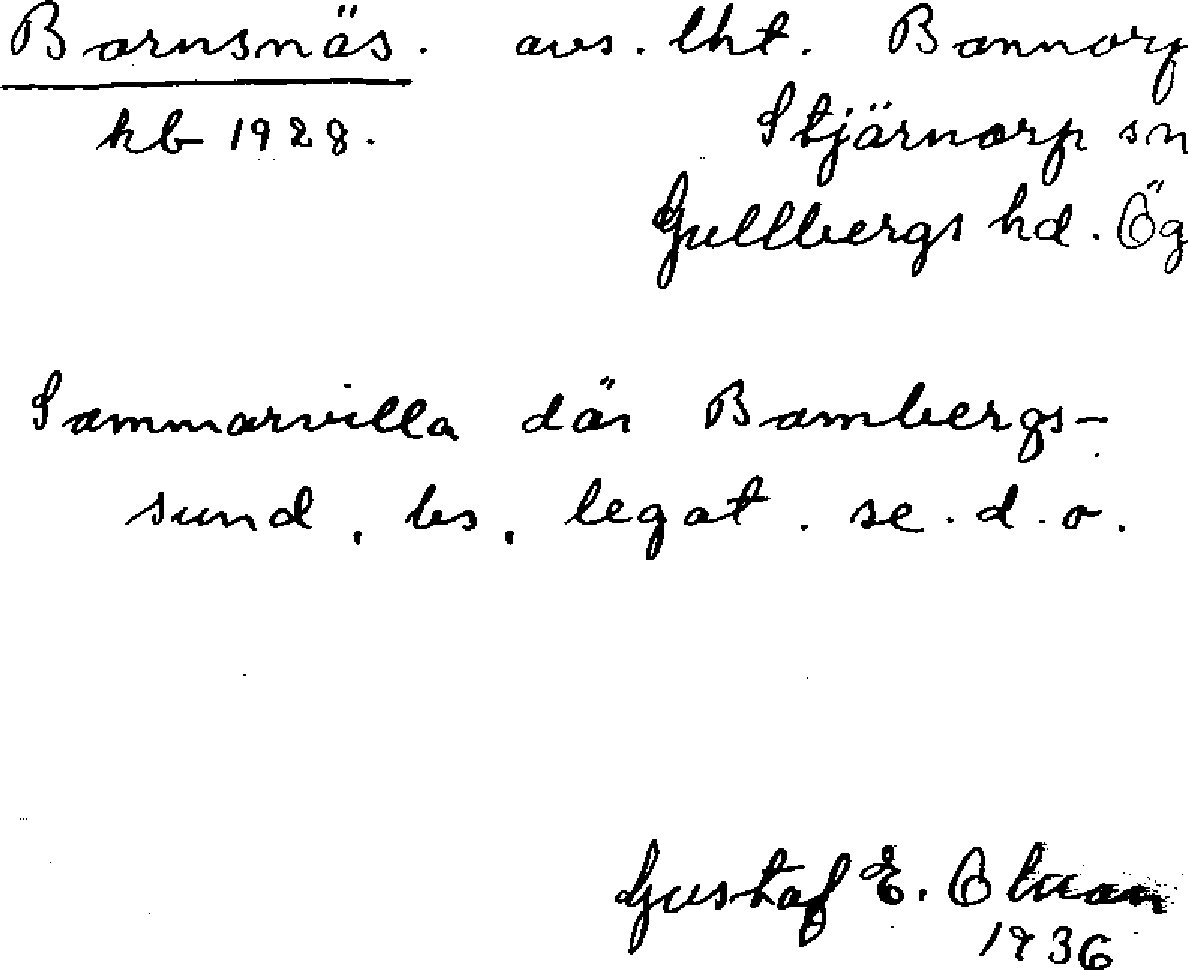 Barnsnäs. avs. lht. Bonnorp
kb 1928. Stjärnorp sn
Gullbergs hd. Ög
Sommarvilla där Bambergs-
sund, bs, legat. se. d. o.
Gustaf E.
1936